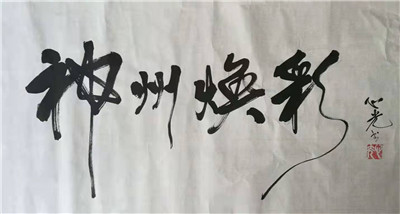 神州焕彩
心光书